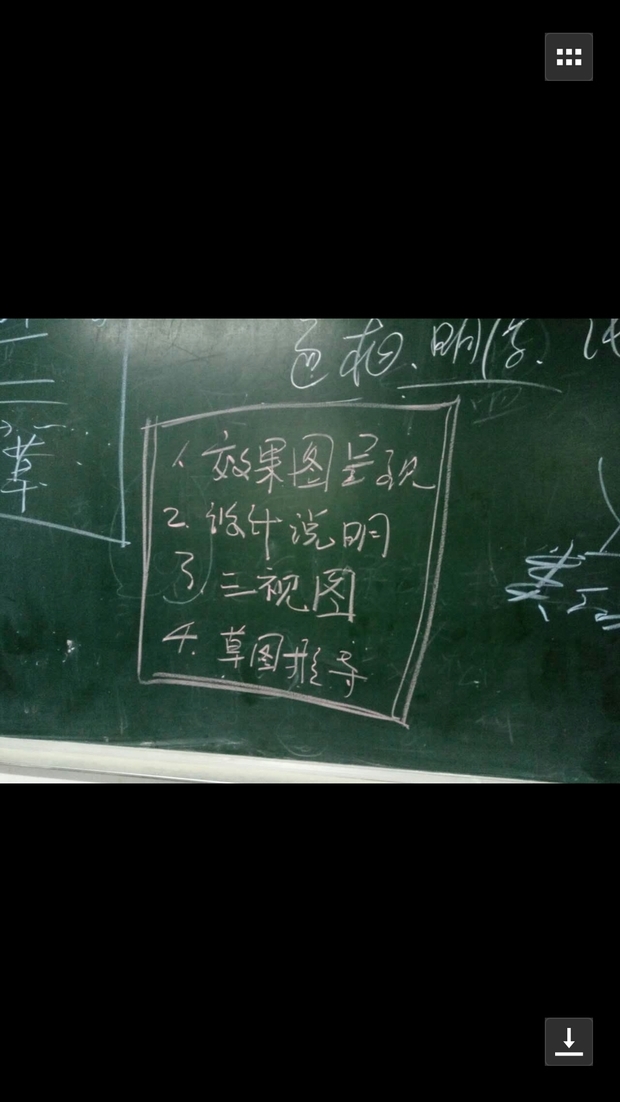 色相、明度、
1. 效果图呈现
2. 设计说明
3. 三视图
4. 草图推导
草